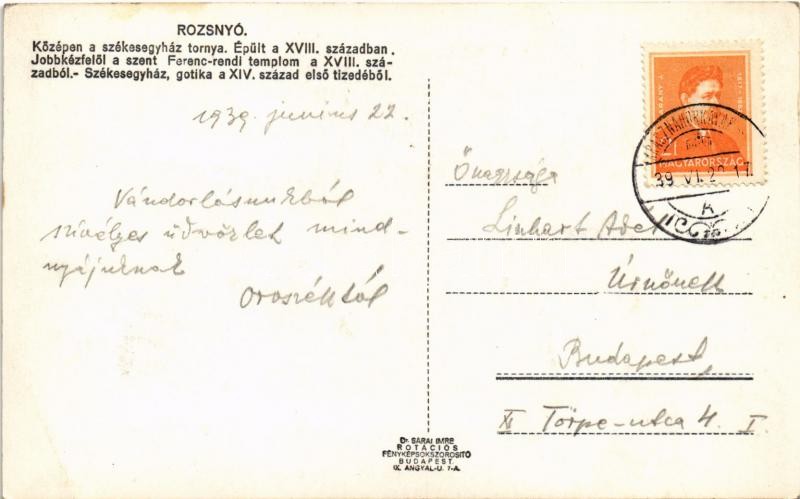 ROZSNYÓ.
Középen a székesegyház tornya. Épült a XVIII. században.
Jobbkézfelöl a szent Ferenc-rendi templom a XVIII. szá-
zadból.- Székesegyház, gotika a XIV. század első tizedéből.
1939. junius 22.
Vándorlásunkból
szivélyes üdvözlet mind-
nyájuknak
Oroszéktól
ARANY J.
MAGYARORSZÁG
39 VI. 22 17
K
Őnagysága
Linhart Adél
Úrnőnek
Budapest
XI Törpe-utca 4. I.
Dr. SÁRAI IMRE
ROTÁCIÓS
FÉNYKÉPSOKSZOROSITÓ
BUDAPEST.
IX. ANGYAL-U. 7-A.